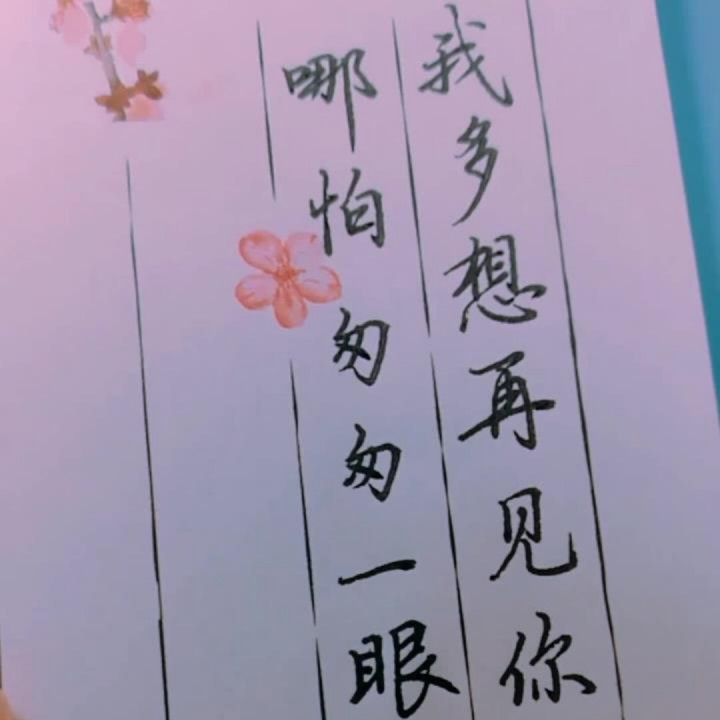 我多想再见你
哪怕匆匆一眼